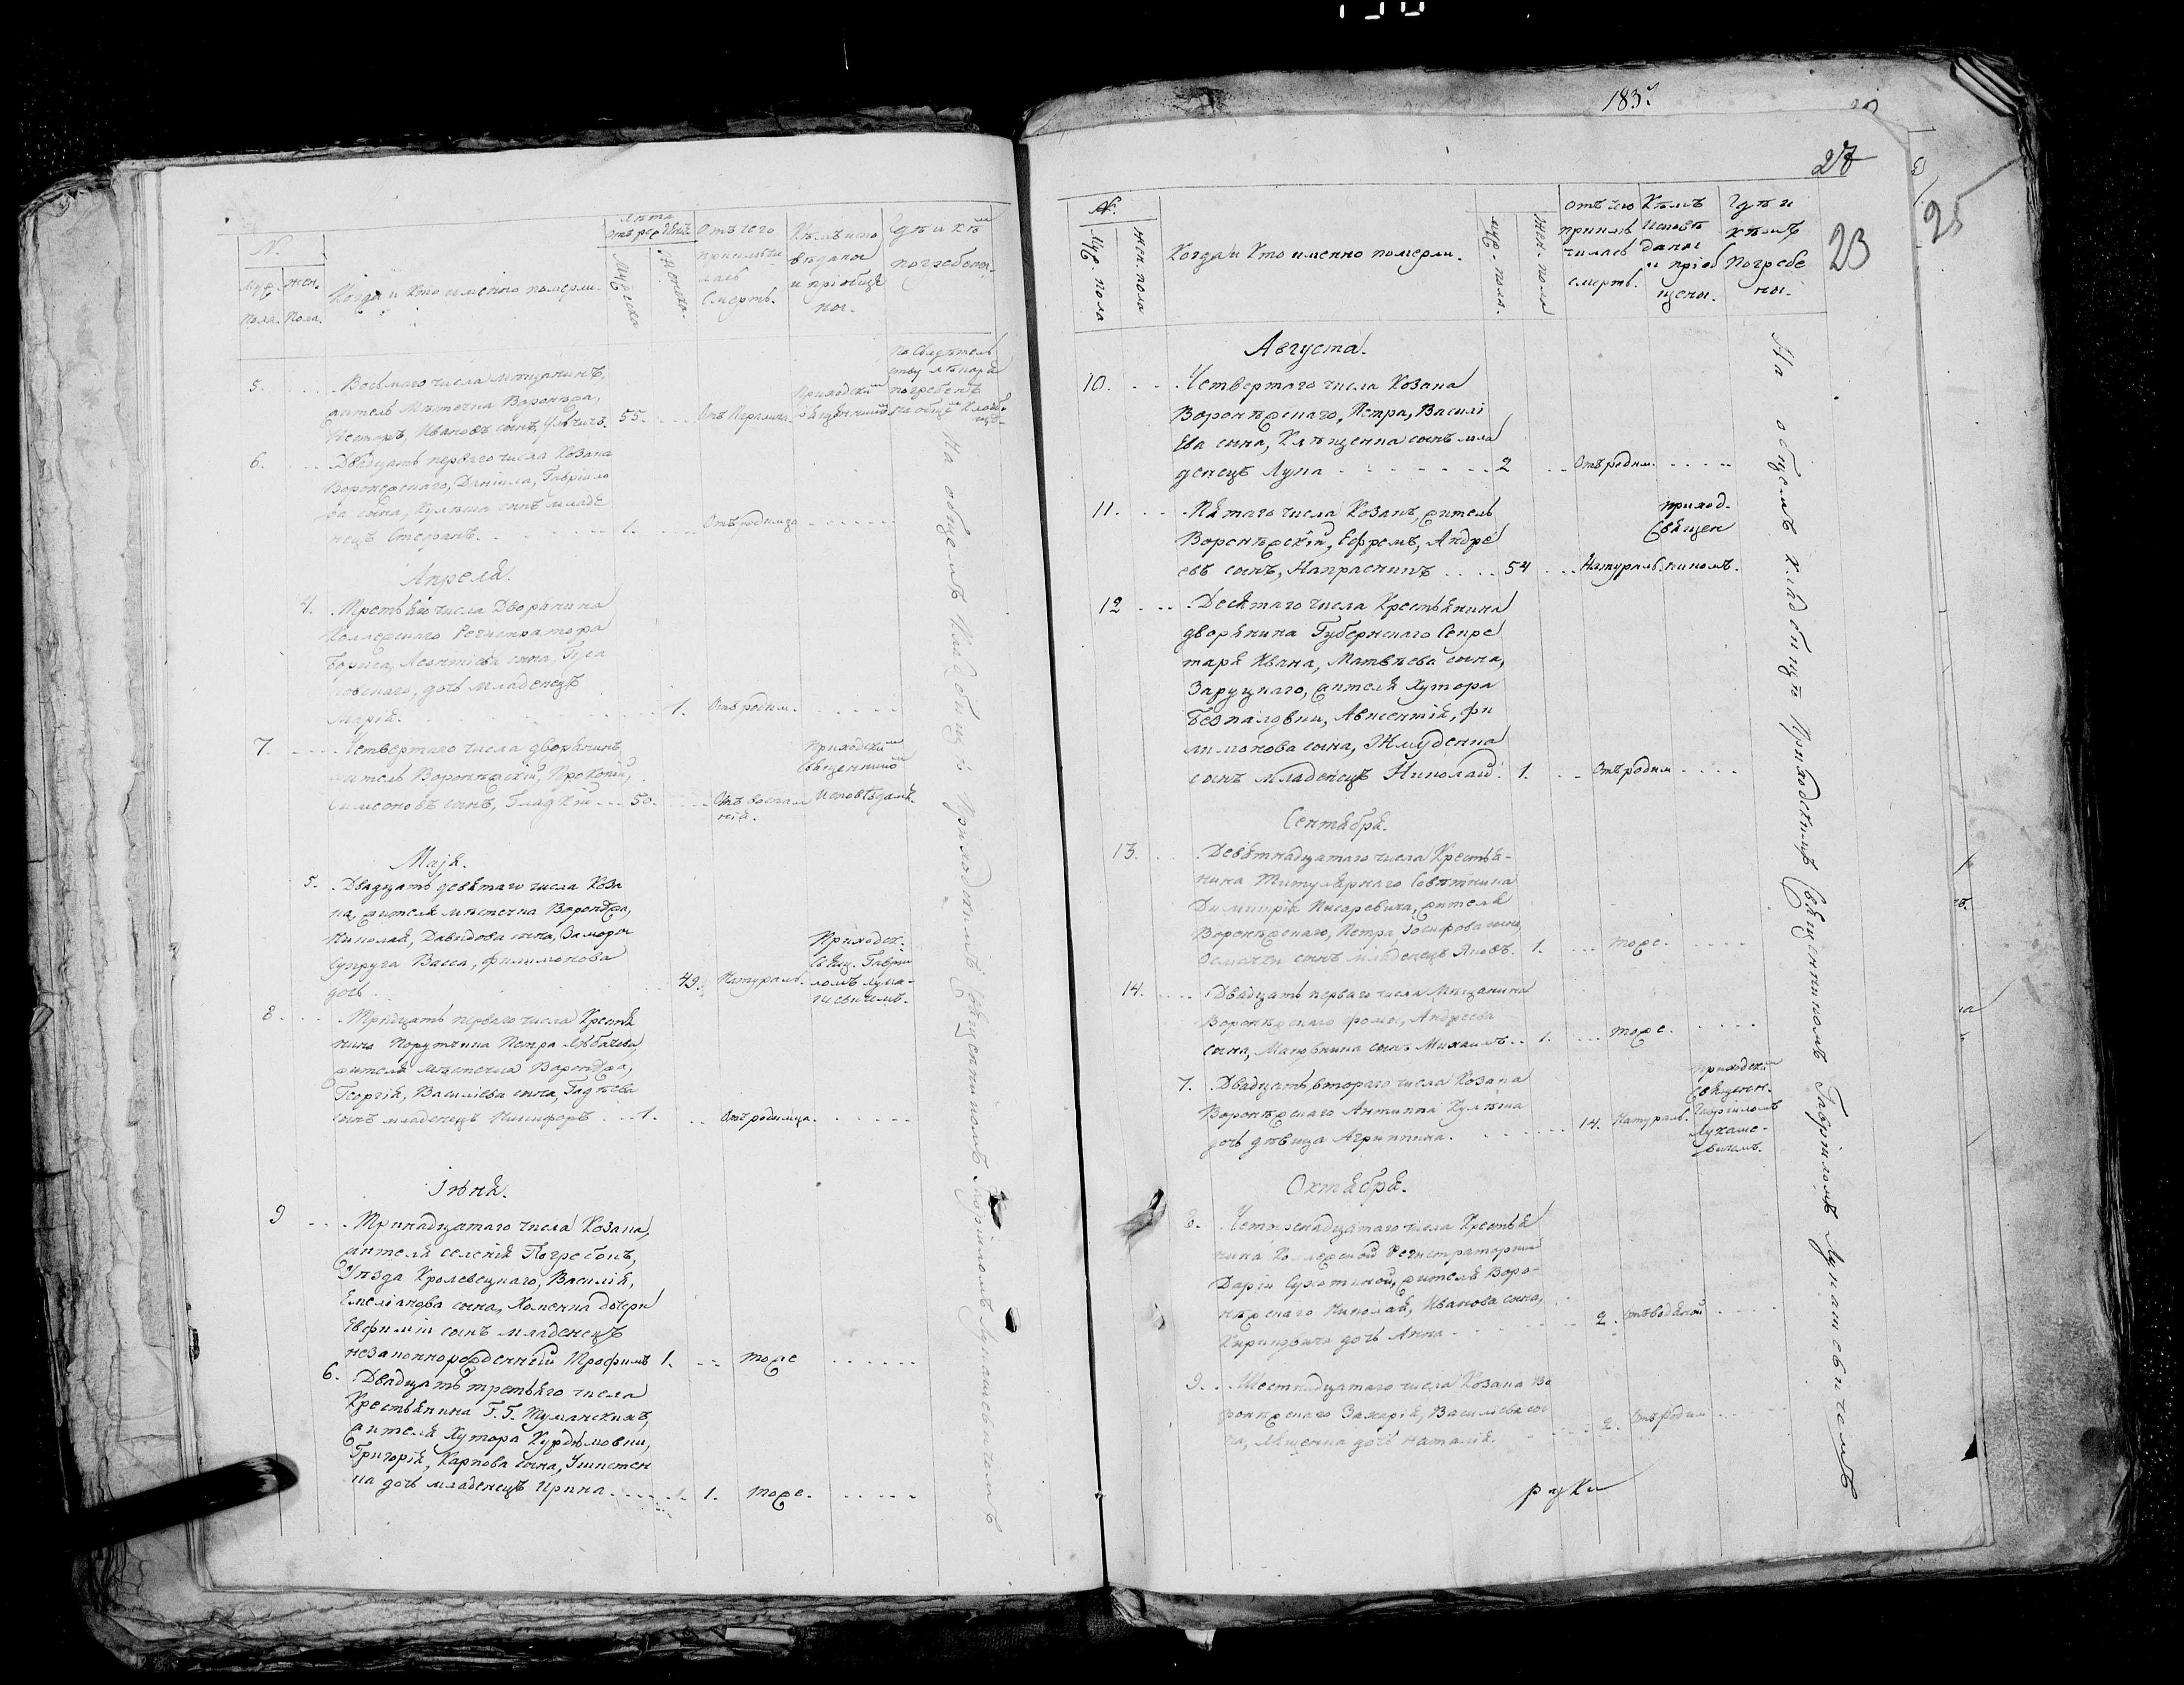 N.
Муж. Жен.
Пола. Пола.
Когда и Кто именно померли.
лета
отъ рожденія
Мужеска
Женска
Отъ чего
приключи
лась
Смерть.
Кѣмъ испо
вѣданы
и пріобще
ны.
Гдѣ и кѣмъ
погребены.
5. Восьмаго числа мѣщанинъ,
житель Мѣстечка Воронежа,
Несторъ, Ивановъ сынъ, 55.
Приходскимъ
священникомъ
по свидѣтель
ству лѣкаря
погребенъ
на общемъ кладби
щѣ
6. Двадцать перваго числа Козака
Воронежскаго, Даніила, Гавріило
ва сына, Кулѣша сынъ младе
нецъ Стефанъ. 1. Отъ родимца
Апреля.
4. Третьяго числа Дворянина
Коллежскаго Регистратора
Бориса, Леонтіева сына,
дочь младенецъ
Марія. 1. Отъ родим.
7. Четвертаго числа дворянинъ,
житель Воронежскій, Прокопій,
Симеоновъ сынъ, Гладкій 50. Отъ воспале
нія.
Приходскимъ
Священникомъ
Исповѣданъ.
Маія.
5. Двадцать девятаго числа Коза
ка, жителя мѣстечка Воронежа,
Николая, Давидова сына, Заморы
супруга Васса, Филимонова
дочь 49. Натураль.
Приходск.
Свящ. Гаврі
иломъ Лука
шевичемъ.
8. Тридцать перваго числа Крестья
нина Порутчика Петра
жителя мѣстечка Воронежа,
Георгія, Василіева сына, Гадѣева
сынъ младенецъ Никифоръ 1. Отъ родимца.
Іюня.
9 Тринадцатаго числа Козака,
жителя селенія Погребокъ,
Уѣзда Кролевецкаго, Василія,
Емеліанова сына, Хоменка дочери
Евфиміи сынъ младенецъ
незаконнорожденный Трофимъ 1. тоже
6. Двадцать третьяго числа
Крестьянина Г. Г. Туманскихъ,
жителя Хутора Курдюмовки,
Григорія, Карпова сына,
дочь младенецъ Ирина 1. тоже.
На общемъ кладбищѣ Приходскимъ Священникомъ Гавріиломъ Лукашевичемъ
1837
27
23
25
№.
Муж. пола
Жен. пола
Когда и Кто именно померли.
Муж. пола.
Жен. пола
Отъ чего
приклю
чилась
смерть.
Кѣмъ
Исповѣ
даны
и пріоб
щены.
Гдѣ и
кѣмъ
Погребе
ны.
Августа.
10. Четвертаго числа Козака
Воронежскаго, Петра, Василі
ева сына, Клѣщенка сынъ мла
денецъ Лука 2 Отъ родим.
11. Пятаго числа Козакъ, житель
Воронежскій, Ефремъ, Андре
евъ сынъ, Напрасникъ 54 Натураль.
приход.
Священ
никомъ.
12 Десятаго числа Крестьянина
дворянина Губернскаго Секре
таря Ивана, Матвѣева сына,
Заруцкаго, жителя Хутора
Безпаловки, Авксентія, Фи
лимонова сына, Жмуденка
сынъ младенецъ Николай. 1. Отъ родим
Сентября.
13. Девятнадцатаго числа Крестья-
нина Титулярнаго Совѣтника
Димитрія Писаревича, жителя
Воронежскаго, Петра, Іосифова сына,
Осмачки сынъ младенецъ Яковъ. 1. тоже.
14. Двадцать перваго числа Мѣщанина
Воронежскаго Фомы, Андреева
сына, сынъ Михаилъ 1. тоже.
7. Двадцать втораго числа Козака
Воронежскаго Антипа Кулѣша
дочь дѣвица Агриппина. 14. Натураль.
приходскимъ
Священ.
Гавріиломъ
Лукаше-
вичемъ.
Октября.
8. Четырнадцатаго числа Крестья
нина Коллежской Регистраторши
Дарьи Сухотиной, жителя Воро-
нежскаго Николая, Иванова сына,
дочь Анна 2. Отъ водяной
9. Шестнадцатаго числа Козака Во
ронежскаго Захарія, Василіева сы
на, дочь Наталія. 2. Отъ родим
На общемъ кладбищѣ Приходскимъ Священникомъ Гавріиломъ Лукашевичемъ
руки